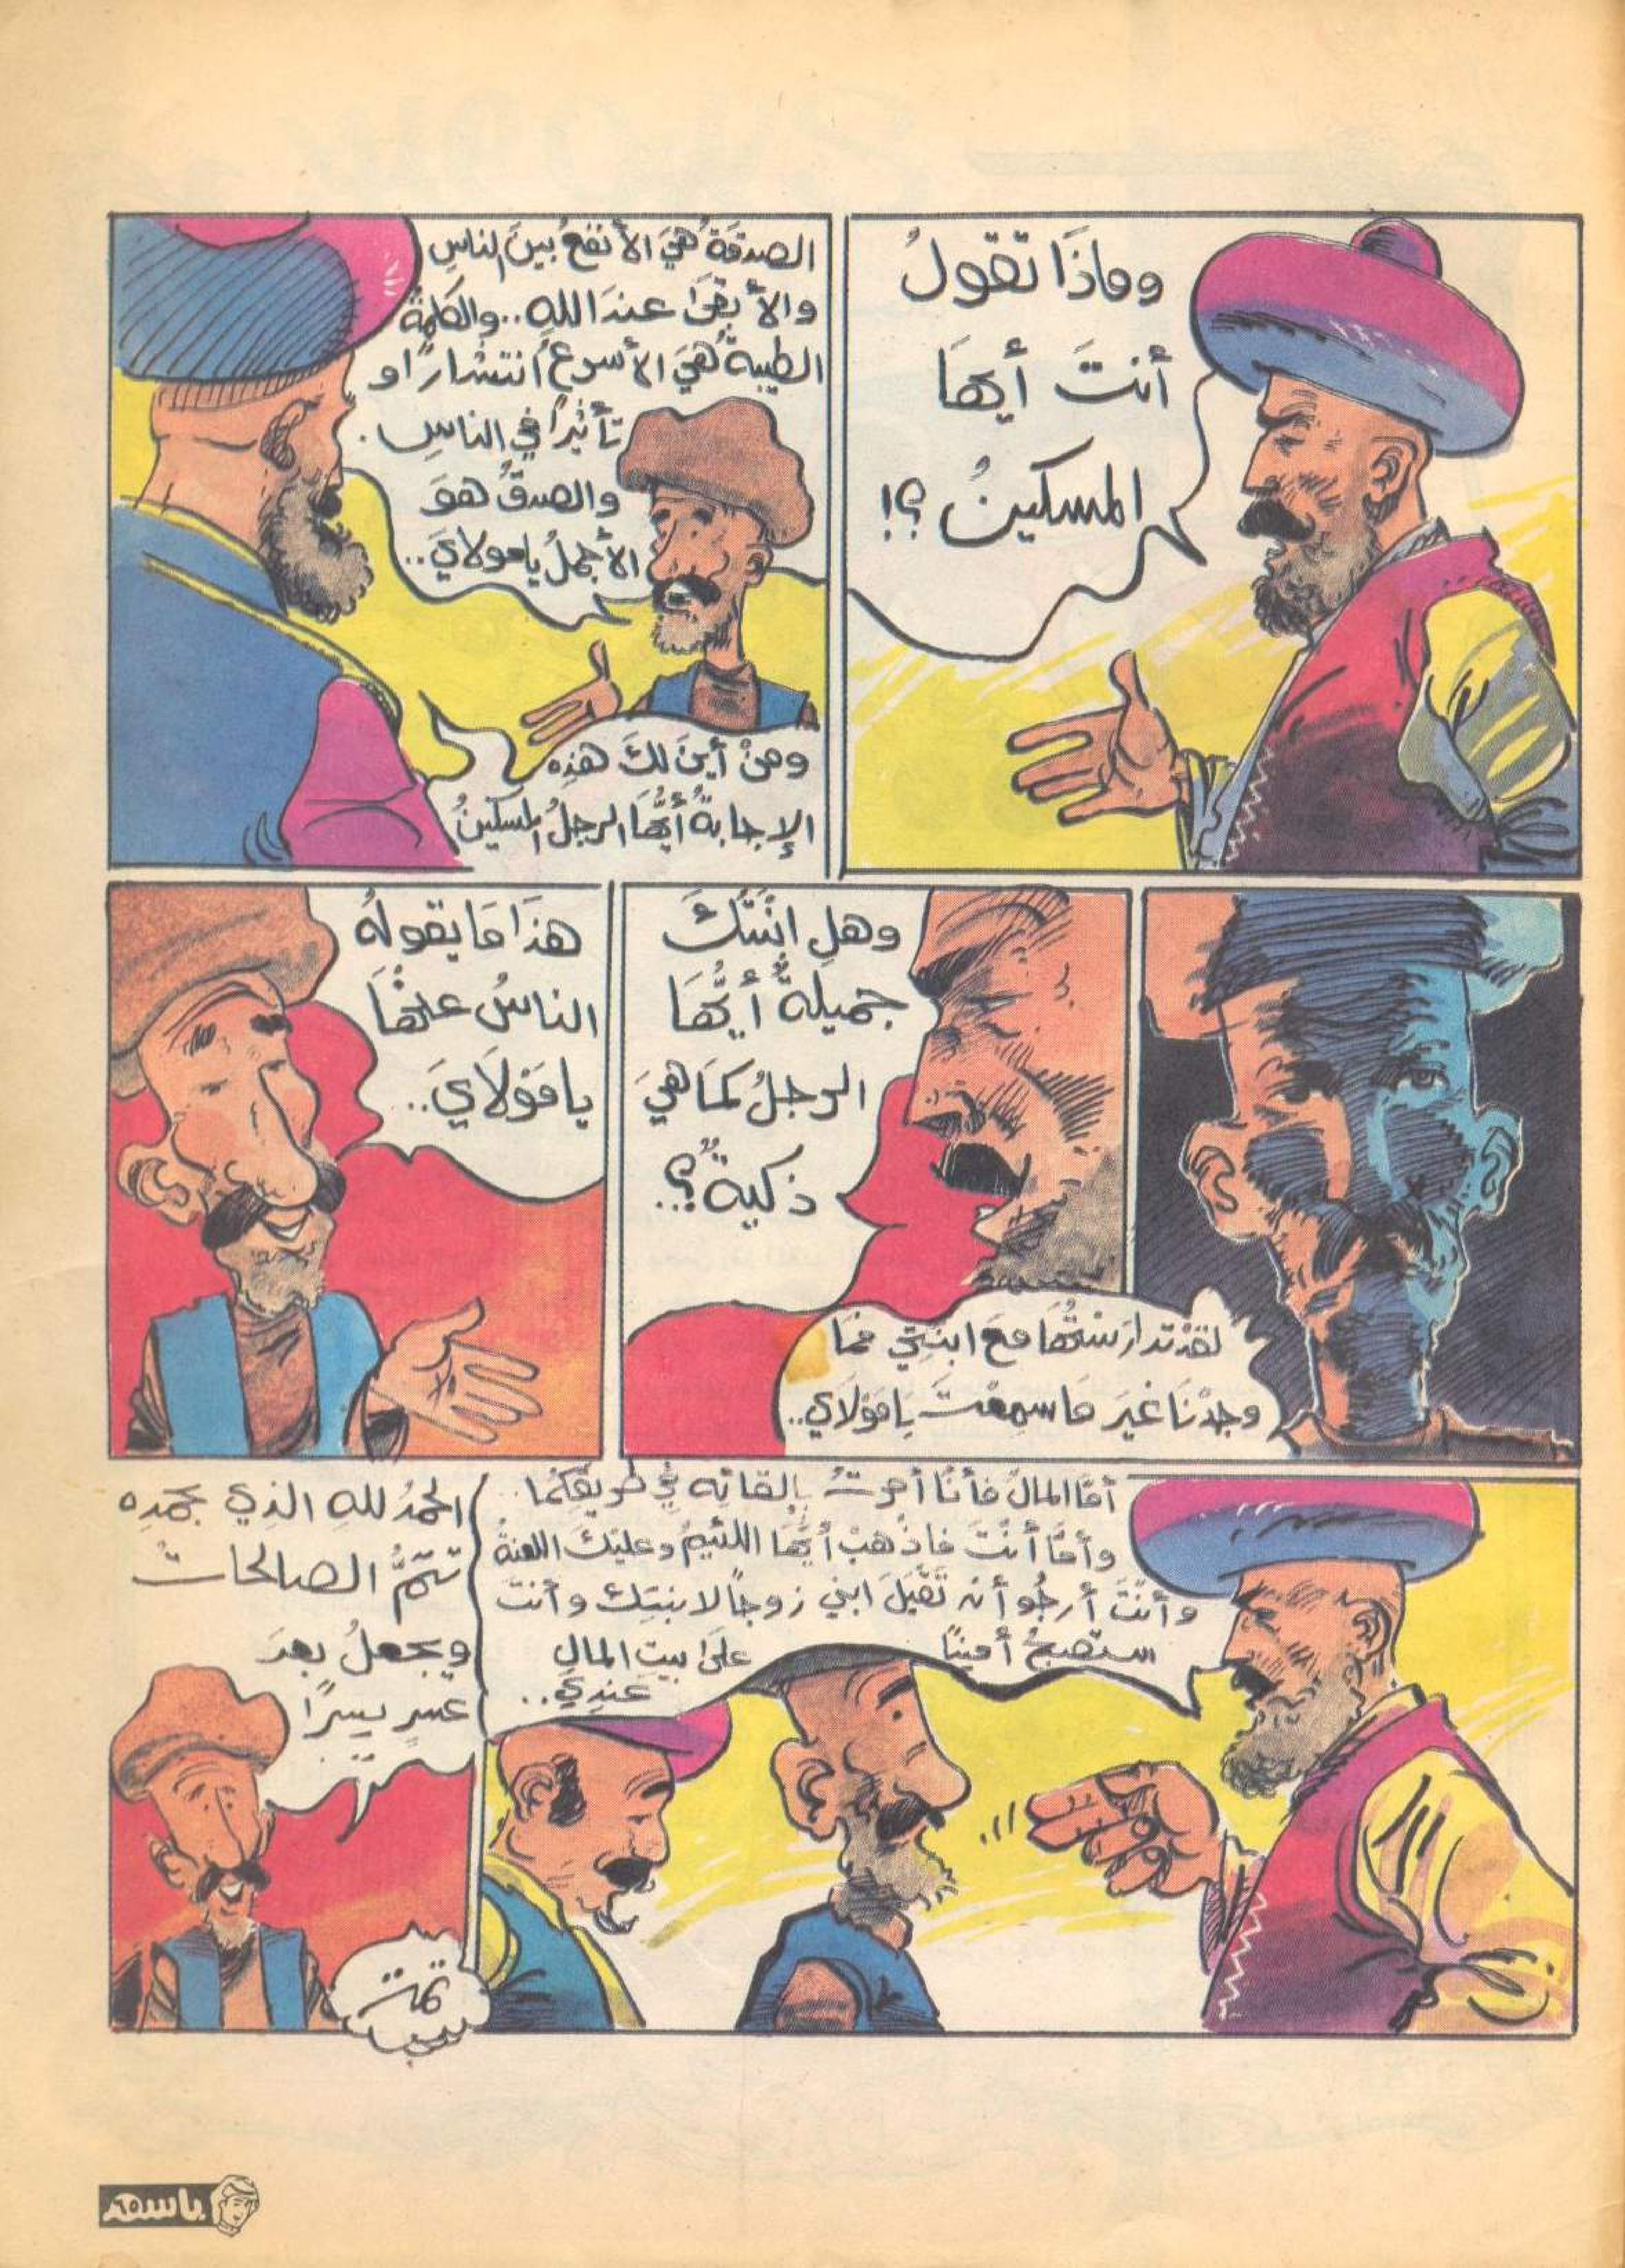 وماذَا تقولُ
أنتَ أيهَا
المسكينُ ؟!
الصدقةُ هيَ الأنفعُ بينَ الناسِ
والأبقىَ عندَ اللهِ .. والكلمةُ
الطيبةُ هيَ الأسرعُ انتشارًا و
تأثيرًا في الناسِ .
والصدقُ هوَ
الأجملُ يا مولايَ ..
ومنْ أينَ لكَ هذِه
الإجابةُ أيُّهَا الرجلُ المسكينُ
لقدْ تدارستُهَا معَ ابنتِي فمَا
وجدْنَا غيَر ما سمِعْتَ يَا مَوْلَاي ..
وهلِ ابْنتُكَ
جميلةٌ أيُّهَا
الرجلُ كمَا هيَ
ذكيةٌ ؟..
هذَا مَا يقولهُ
الناسُ عنْهَا
يا مَوْلَايَ ..
أمَّا المالُ فأنَا أمرتُ بإلقائِه في طريقِكُما ..
وأمَّا أنْتَ فاذْهبْ أيُّهَا اللئيمُ وعليْكَ اللعنةُ
وأنْتَ أرجُو أنْ تَقْبَلَ ابني زوجًا لابنتِك وأنتَ
ستصبحُ أمينًا على بيتِ المالِ
عندِي ..
الحمْدُ للهِ الذِي بحمْدِه
تتمُّ الصالحاتُ
ويجعلُ بعدَ
عسرٍ يسرًا
..
تمت
باسم